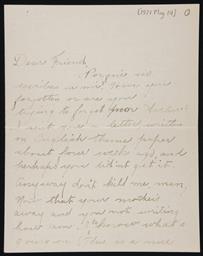 [1921 May 19]
Dear Friend,
Porque no
escribes a mi, Have you
forgotten or are you
trying to forget poor
I sent you a letter written
on English theme paper
about four weeks ago, and
perhaps you didn't get it.
Anyway don't kill me man,
Now that your mother's
away and you not writing
how am I to know what's
going on. This is a nice